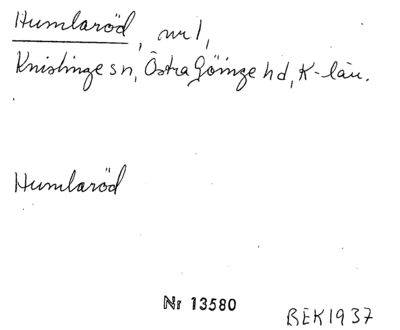 Humlaröd, nr 1,
Knislinge sn, Östra Göinge hd, K-län.
Humlaröd
Nr 13580
BEK1937